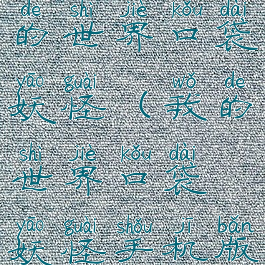 de shì jiè kǒu dài
的世界口袋
yāo guài wǒ de
妖怪(我的
shì jiè kǒu dài
世界口袋
yāo guài shǒu jī bǎn
妖怪手机版